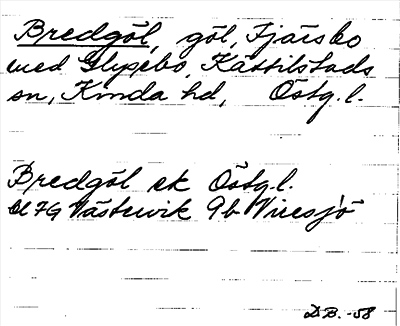 Bredgöl, göl, Fjärsbo
med Glypebo, Kättilstads
sn, Kinda hd, Östg.l.
Bredgöl ek Östg.l.
Bl 7G Västervik 9b Vicesjö
D.B. -58